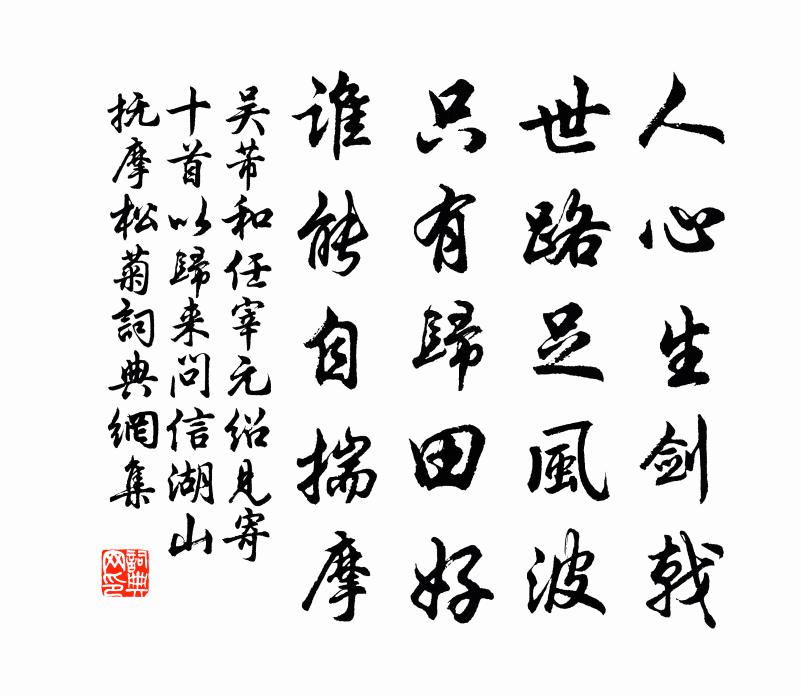 人心生剑戟
世路足風波
只有歸田好
誰能自揣摩
吴芾和任宰元绍見寄
十首以歸来問信湖山
抚摩松菊詞典網集
詞典
网印